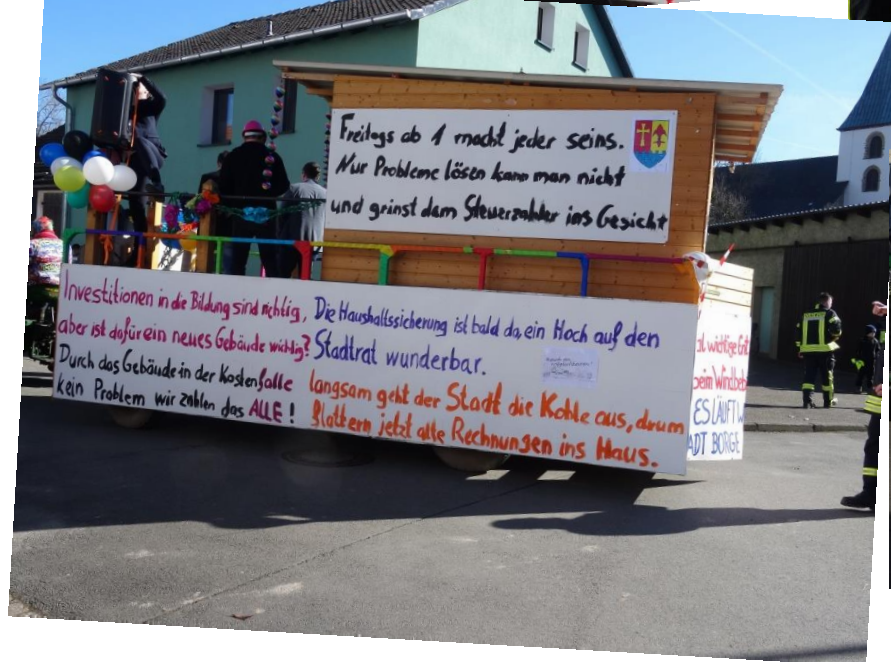 Freitags ab 1 macht jeder seins.
Nur Probleme lösen kann man nicht
und grinst dem Steuerzahler ins Gesicht
Investitionen in die Bildung sind richtig,
aber ist dafür ein neues Gebäude wichtig?
Durch das Gebäude in der Kostenfalle
kein Problem wir zahlen das ALLE!
Die Haushaltssicherung ist bald da, ein Hoch auf den
Stadtrat wunderbar.
langsam geht der Stadt die Kohle aus, drum
flattern jetzt alle Rechnungen ins Haus.
wichtige
beim Windbe
ES LÄUFT
ADT BORGE